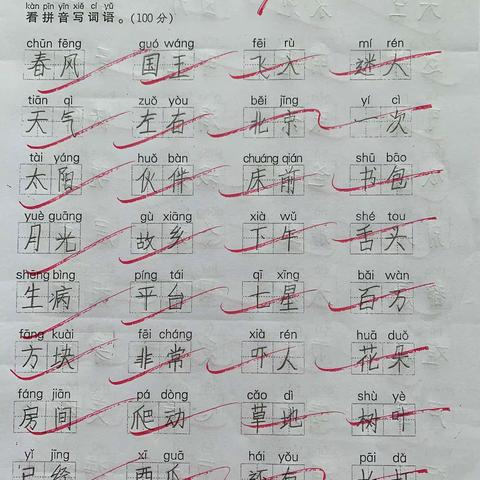 kàn pīn yīn xiě cí yǔ
看拼音写词语。(100分)
chūn fēng guó wáng fēi rù mí rén
春风 国王 飞入 迷人
tiān qì zuǒ yòu běi jīng yí cì
天气 左右 北京 一次
tài yáng huǒ bàn chuáng qián shū bāo
太阳 伙伴 床前 书包
yuè guāng gù xiāng xià wǔ shé tou
月光 故乡 下午 舌头
shēng bìng píng tái qī xīng bǎi wàn
生病 平台 七星 百万
fāng kuài fēi cháng xià rén huā duǒ
方块 非常 吓人 花朵
fáng jiān pá dòng cǎo dì shù yè
房间 爬动 草地 树叶
yǐ jīng xī guā hái yǒu pāi dǎ
已经 西瓜 还有